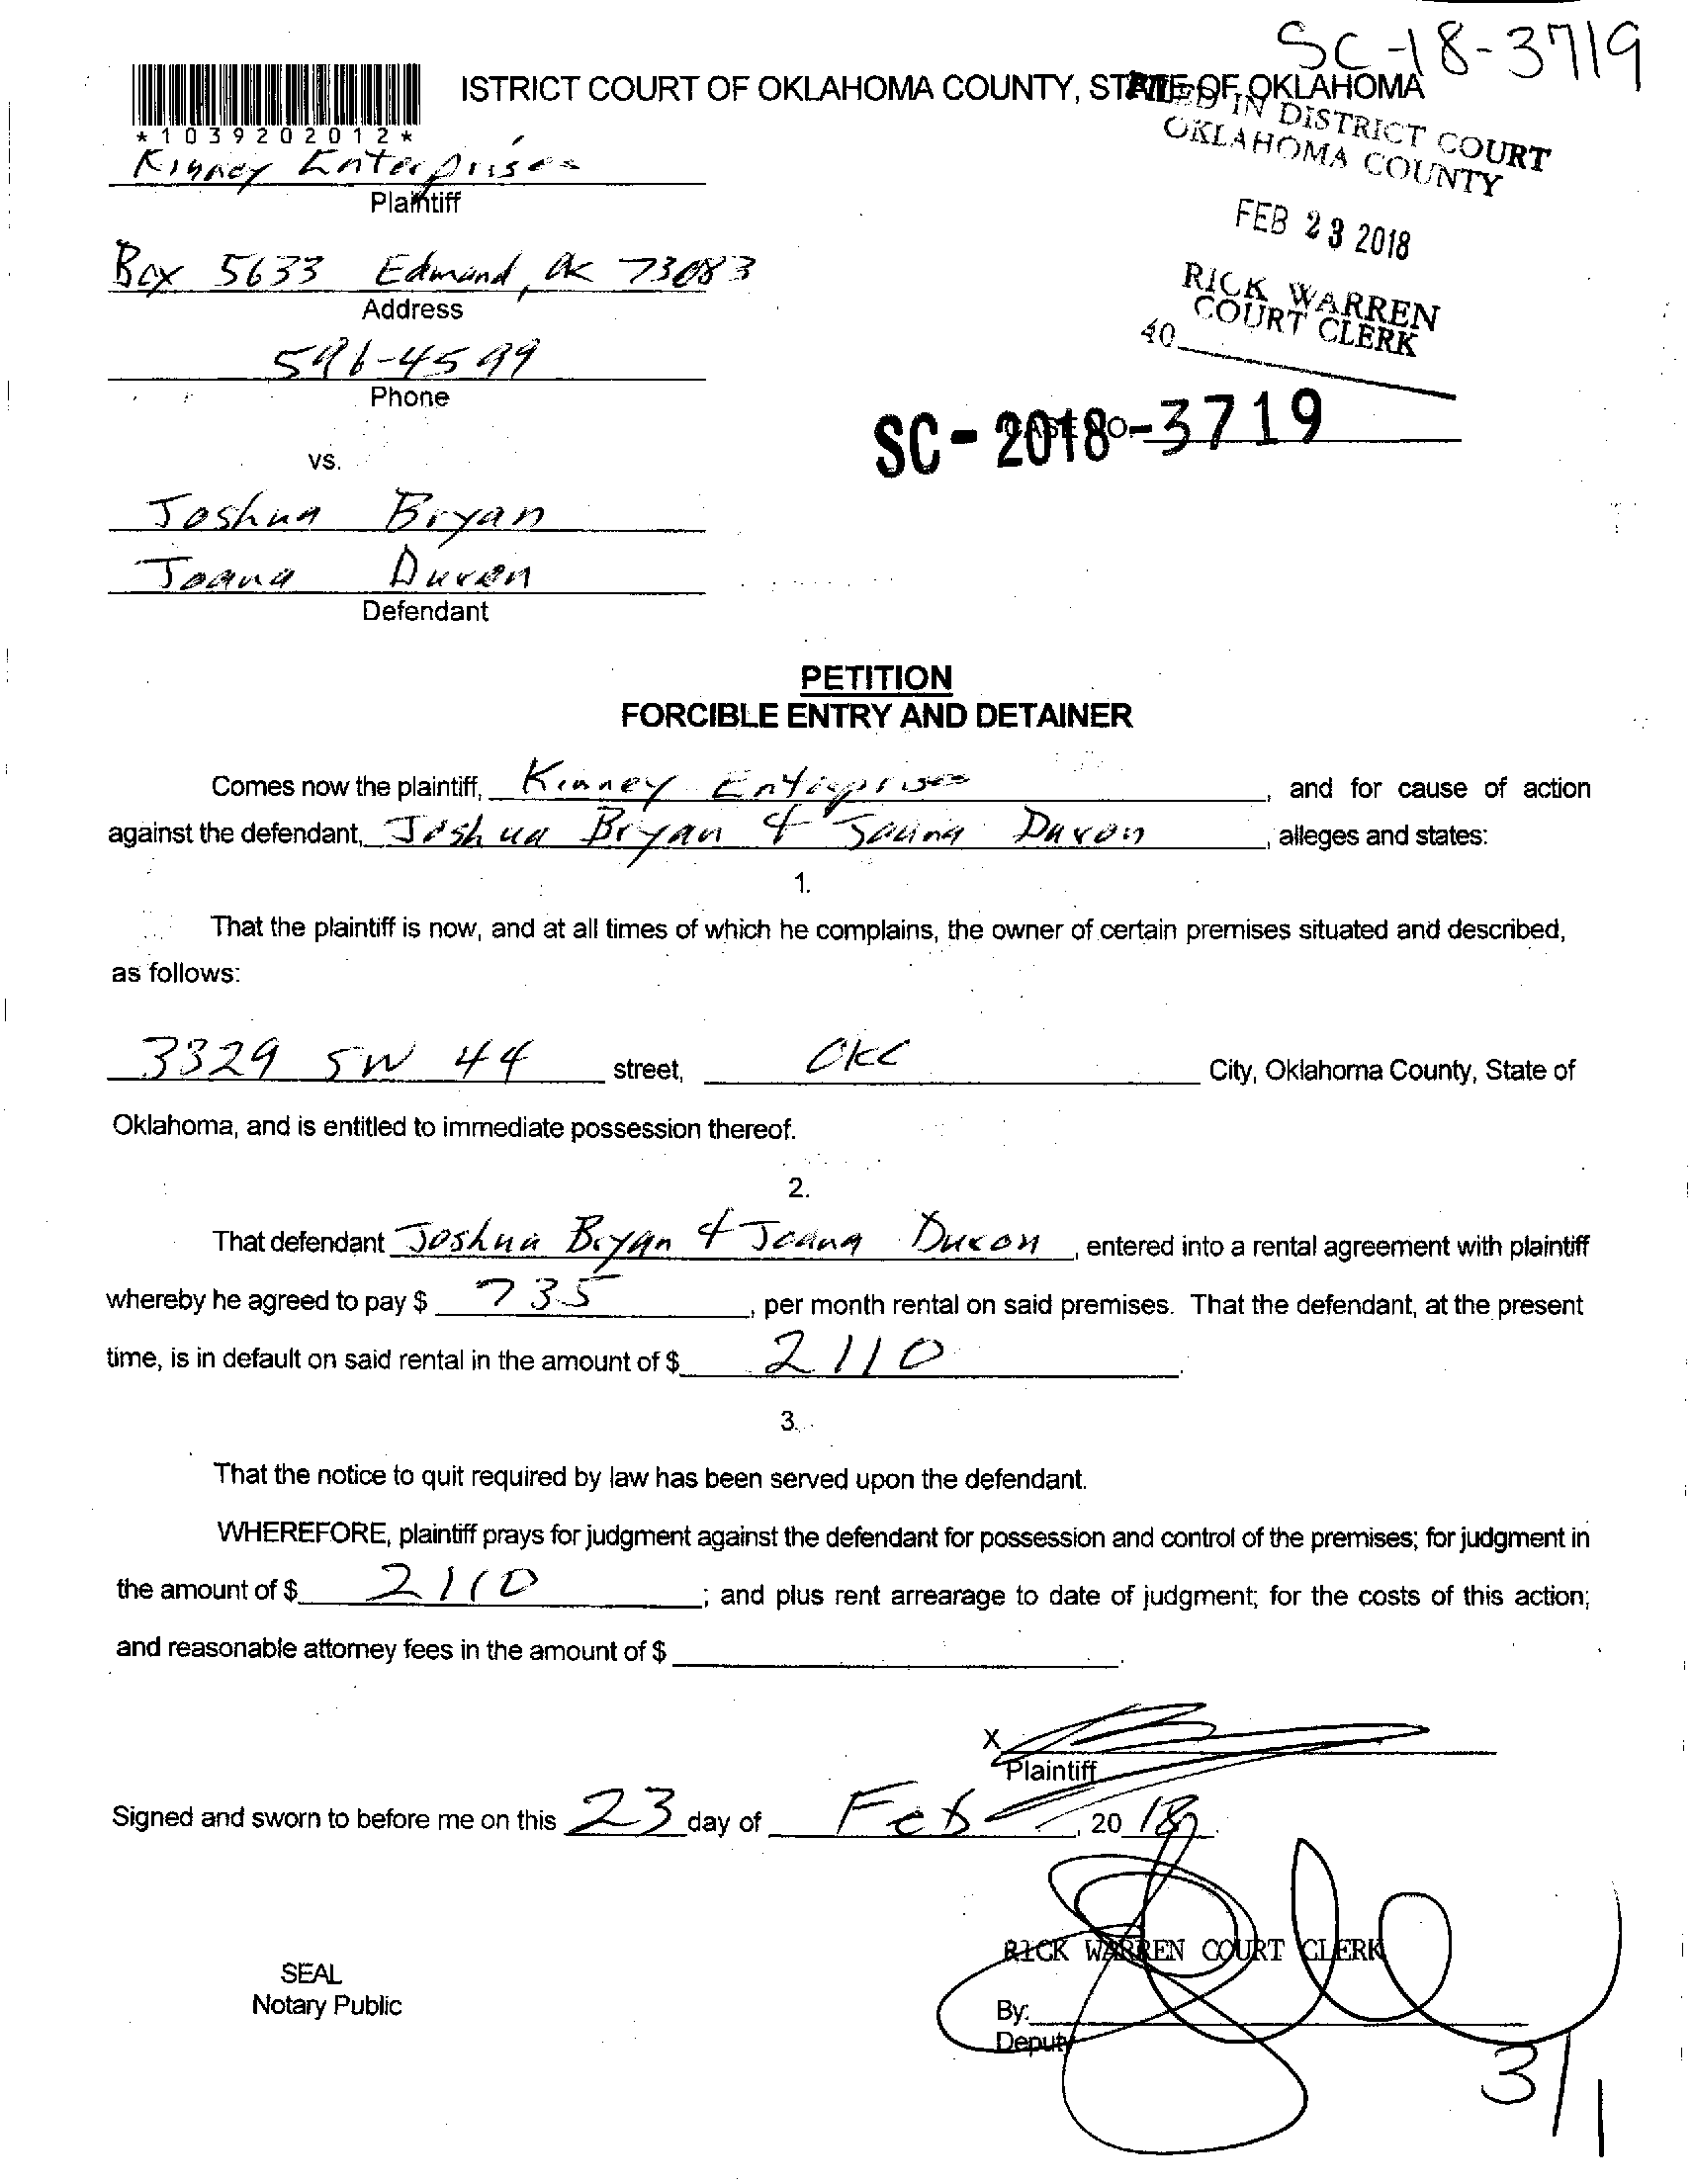 SC-18-3719
ISTRICT COURT OF OKLAHOMA COUNTY, STATE OF OKLAHOMA
FILED IN DISTRICT COURT
OKLAHOMA COUNTY
*1039202012*
Kinney Enterprises
Plaintiff
FEB 23 2018
Box 5633 Edmond, OK 73083
Address
RICK WARREN
COURT CLERK
40
596-4599
Phone
CASE NO.
SC-2018-3719
vs.
Joshua Bryan
Joana Duron
Defendant
PETITION
FORCIBLE ENTRY AND DETAINER
Comes now the plaintiff, Kinney Enterprises, and for cause of action
against the defendant, Joshua Bryan & Joana Duron, alleges and states:
1.
That the plaintiff is now, and at all times of which he complains, the owner of certain premises situated and described,
as follows:
3329 SW 44 street, OKC City, Oklahoma County, State of
Oklahoma, and is entitled to immediate possession thereof.
2.
That defendant Joshua Bryan & Joana Duron, entered into a rental agreement with plaintiff
whereby he agreed to pay $ 735, per month rental on said premises. That the defendant, at the present
time, is in default on said rental in the amount of $ 2110.
3.
That the notice to quit required by law has been served upon the defendant.
WHEREFORE, plaintiff prays for judgment against the defendant for possession and control of the premises; for judgment in
the amount of $ 2110; and plus rent arrearage to date of judgment; for the costs of this action;
and reasonable attorney fees in the amount of $ .
X
Plaintiff
Signed and sworn to before me on this 23 day of Feb, 20 18.
RICK WARREN COURT CLERK
SEAL
Notary Public
By:
Deputy
3/1